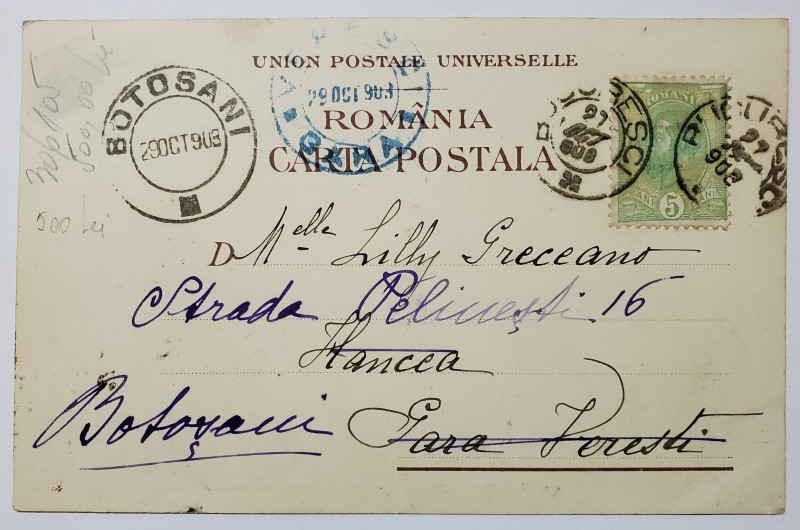 UNION POSTALE UNIVERSELLE
ROMÂNIA
CARTA POSTALA
BOTOSANI
29OCT903
29OCT903
GARA
BUCURESCI
27
OCT
903
27
903
ROMANIA
5
BANI
30/105
500,00 lei
500 Lei
D Melle Lilly Greceano
Strada Pelineşti 16
Hancea
Botoşani
Gara Veresti